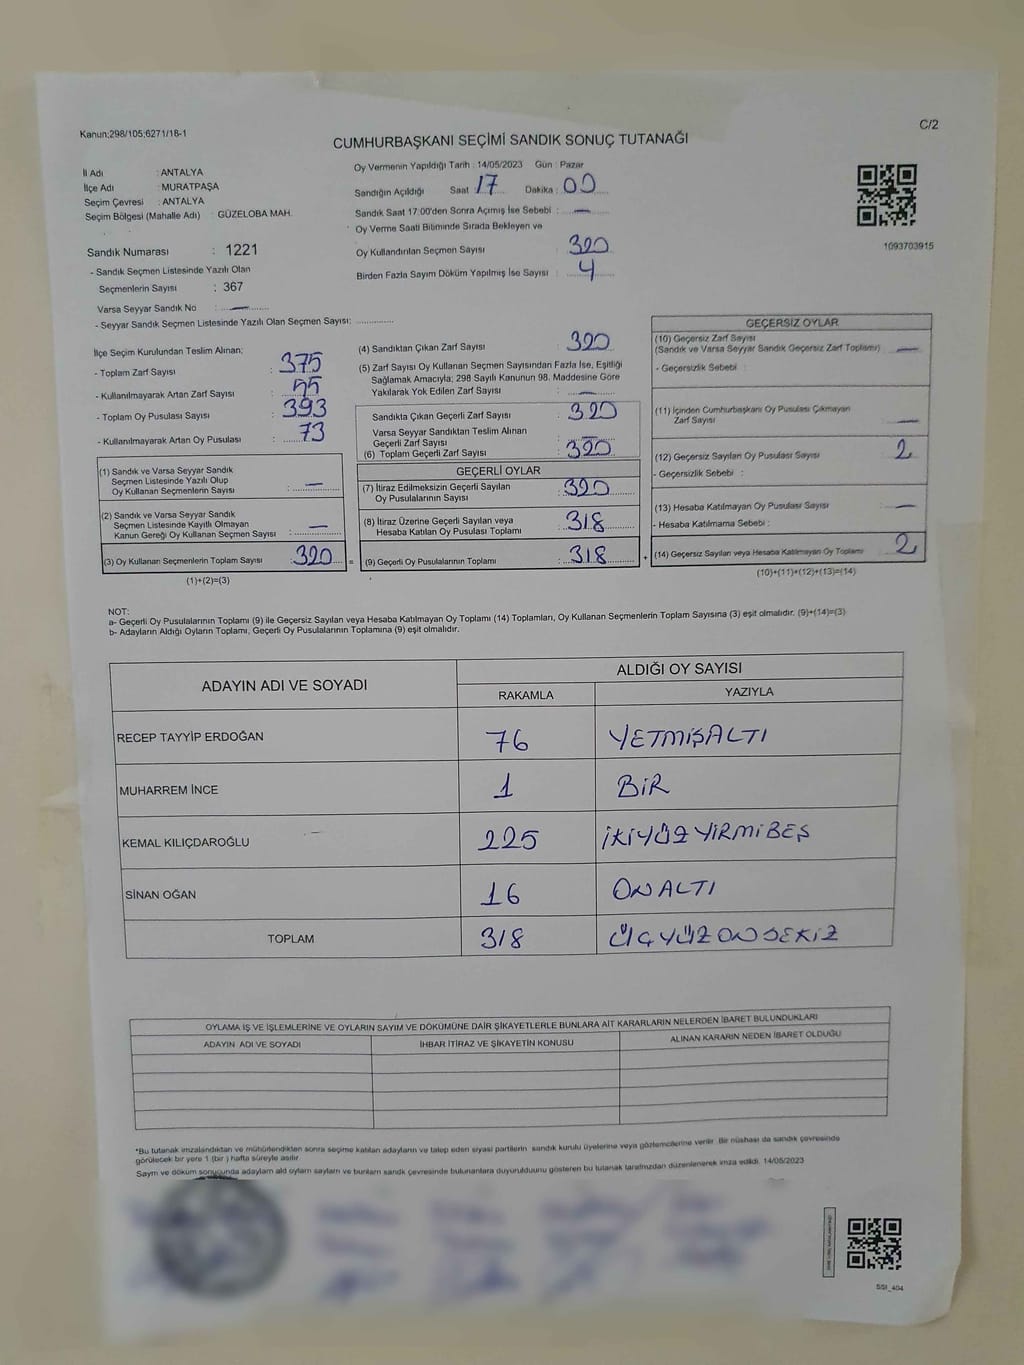 Kanun:298/105;6271/18-1
C/2
CUMHURBAŞKANI SEÇİMİ SANDIK SONUÇ TUTANAĞI
İl Adı : ANTALYA
İlçe Adı : MURATPAŞA
Seçim Çevresi : ANTALYA
Seçim Bölgesi (Mahalle Adı) : GÜZELOBA MAH.
Sandık Numarası : 1221
- Sandık Seçmen Listesinde Yazılı Olan
Seçmenlerin Sayısı : 367
Varsa Seyyar Sandık No : —
- Seyyar Sandık Seçmen Listesinde Yazılı Olan Seçmen Sayısı:
Oy Vermenin Yapıldığı Tarih : 14/05/2023 Gün : Pazar
Sandığın Açıldığı Saat : 17 Dakika : 00
Sandık Saat 17:00'den Sonra Açımış İse Sebebi : —
Oy Verme Saati Bitiminde Sırada Bekleyen ve
Oy Kullandırılan Seçmen Sayısı : 320
Birden Fazla Sayım Döküm Yapılmış İse Sayısı : 4
1093703915
İlçe Seçim Kurulundan Teslim Alınan;
- Toplam Zarf Sayısı : 375
- Kullanılmayarak Artan Zarf Sayısı : 55
- Toplam Oy Pusulası Sayısı : 393
- Kullanılmayarak Artan Oy Pusulası : 73
(1) Sandık ve Varsa Seyyar Sandık
Seçmen Listesinde Yazılı Olup
Oy Kullanan Seçmenlerin Sayısı : —
(2) Sandık ve Varsa Seyyar Sandık
Seçmen Listesinde Kayıtlı Olmayan
Kanun Gereği Oy Kullanan Seçmen Sayısı : —
(3) Oy Kullanan Seçmenlerin Toplam Sayısı : 320
(1)+(2)=(3)
(4) Sandıktan Çıkan Zarf Sayısı : 320
(5) Zarf Sayısı Oy Kullanan Seçmen Sayısından Fazla İse, Eşitliği
Sağlamak Amacıyla; 298 Sayılı Kanunun 98. Maddesine Göre
Yakılarak Yok Edilen Zarf Sayısı : —
Sandıkta Çıkan Geçerli Zarf Sayısı : 320
Varsa Seyyar Sandıktan Teslim Alınan
Geçerli Zarf Sayısı : —
(6) Toplam Geçerli Zarf Sayısı : 320
GEÇERLİ OYLAR
(7) İtiraz Edilmeksizin Geçerli Sayılan
Oy Pusulalarının Sayısı : 320
(8) İtiraz Üzerine Geçerli Sayılan veya
Hesaba Katılan Oy Pusulası Toplamı : 318
= (9) Geçerli Oy Pusulalarının Toplamı : 318 +
GEÇERSİZ OYLAR
(10) Geçersiz Zarf Sayısı
(Sandık ve Varsa Seyyar Sandık Geçersiz Zarf Toplamı) : —
- Geçersizlik Sebebi :
(11) İçinden Cumhurbaşkanı Oy Pusulası Çıkmayan
Zarf Sayısı : —
(12) Geçersiz Sayılan Oy Pusulası Sayısı : 2
- Geçersizlik Sebebi :
(13) Hesaba Katılmayan Oy Pusulası Sayısı : —
- Hesaba Katılmama Sebebi :
(14) Geçersiz Sayılan veya Hesaba Katılmayan Oy Toplamı : 2
(10)+(11)+(12)+(13)=(14)
NOT:
a- Geçerli Oy Pusulalarının Toplamı (9) ile Geçersiz Sayılan veya Hesaba Katılmayan Oy Toplamı (14) Toplamları, Oy Kullanan Seçmenlerin Toplam Sayısına (3) eşit olmalıdır. (9)+(14)=(3)
b- Adayların Aldığı Oyların Toplamı, Geçerli Oy Pusulalarının Toplamına (9) eşit olmalıdır.
ADAYIN ADI VE SOYADI
ALDIĞI OY SAYISI
RAKAMLA YAZIYLA
RECEP TAYYİP ERDOĞAN 76 YETMİŞALTI
MUHARREM İNCE 1 BİR
KEMAL KILIÇDAROĞLU 225 İKİYÜZYİRMİBEŞ
SİNAN OĞAN 16 ONALTI
TOPLAM 318 ÜÇYÜZONSEKİZ
OYLAMA İŞ VE İŞLEMLERİNE VE OYLARIN SAYIM VE DÖKÜMÜNE DAİR ŞİKAYETLERLE BUNLARA AİT KARARLARIN NELERDEN İBARET BULUNDUKLARI
ADAYIN ADI VE SOYADI İHBAR İTİRAZ VE ŞİKAYETİN KONUSU ALINAN KARARIN NEDEN İBARET OLDUĞU
*Bu tutanak imzalandıktan ve mühürlendikten sonra seçime katılan adayların ve talep eden siyasi partilerin sandık kurulu üyelerine veya gözlemcilerine verilir. Bir nüshası da sandık çevresinde
görülecek bir yere 1 (bir ) hafta süreyle asılır.
Sayım ve döküm sonucunda adayların aldığı oyların sayılarını ve bunların sandık çevresinde bulunanlara duyurulduğunu gösteren bu tutanak tarafımızdan düzenlenerek imza edildi. 14/05/2023
SSI_404